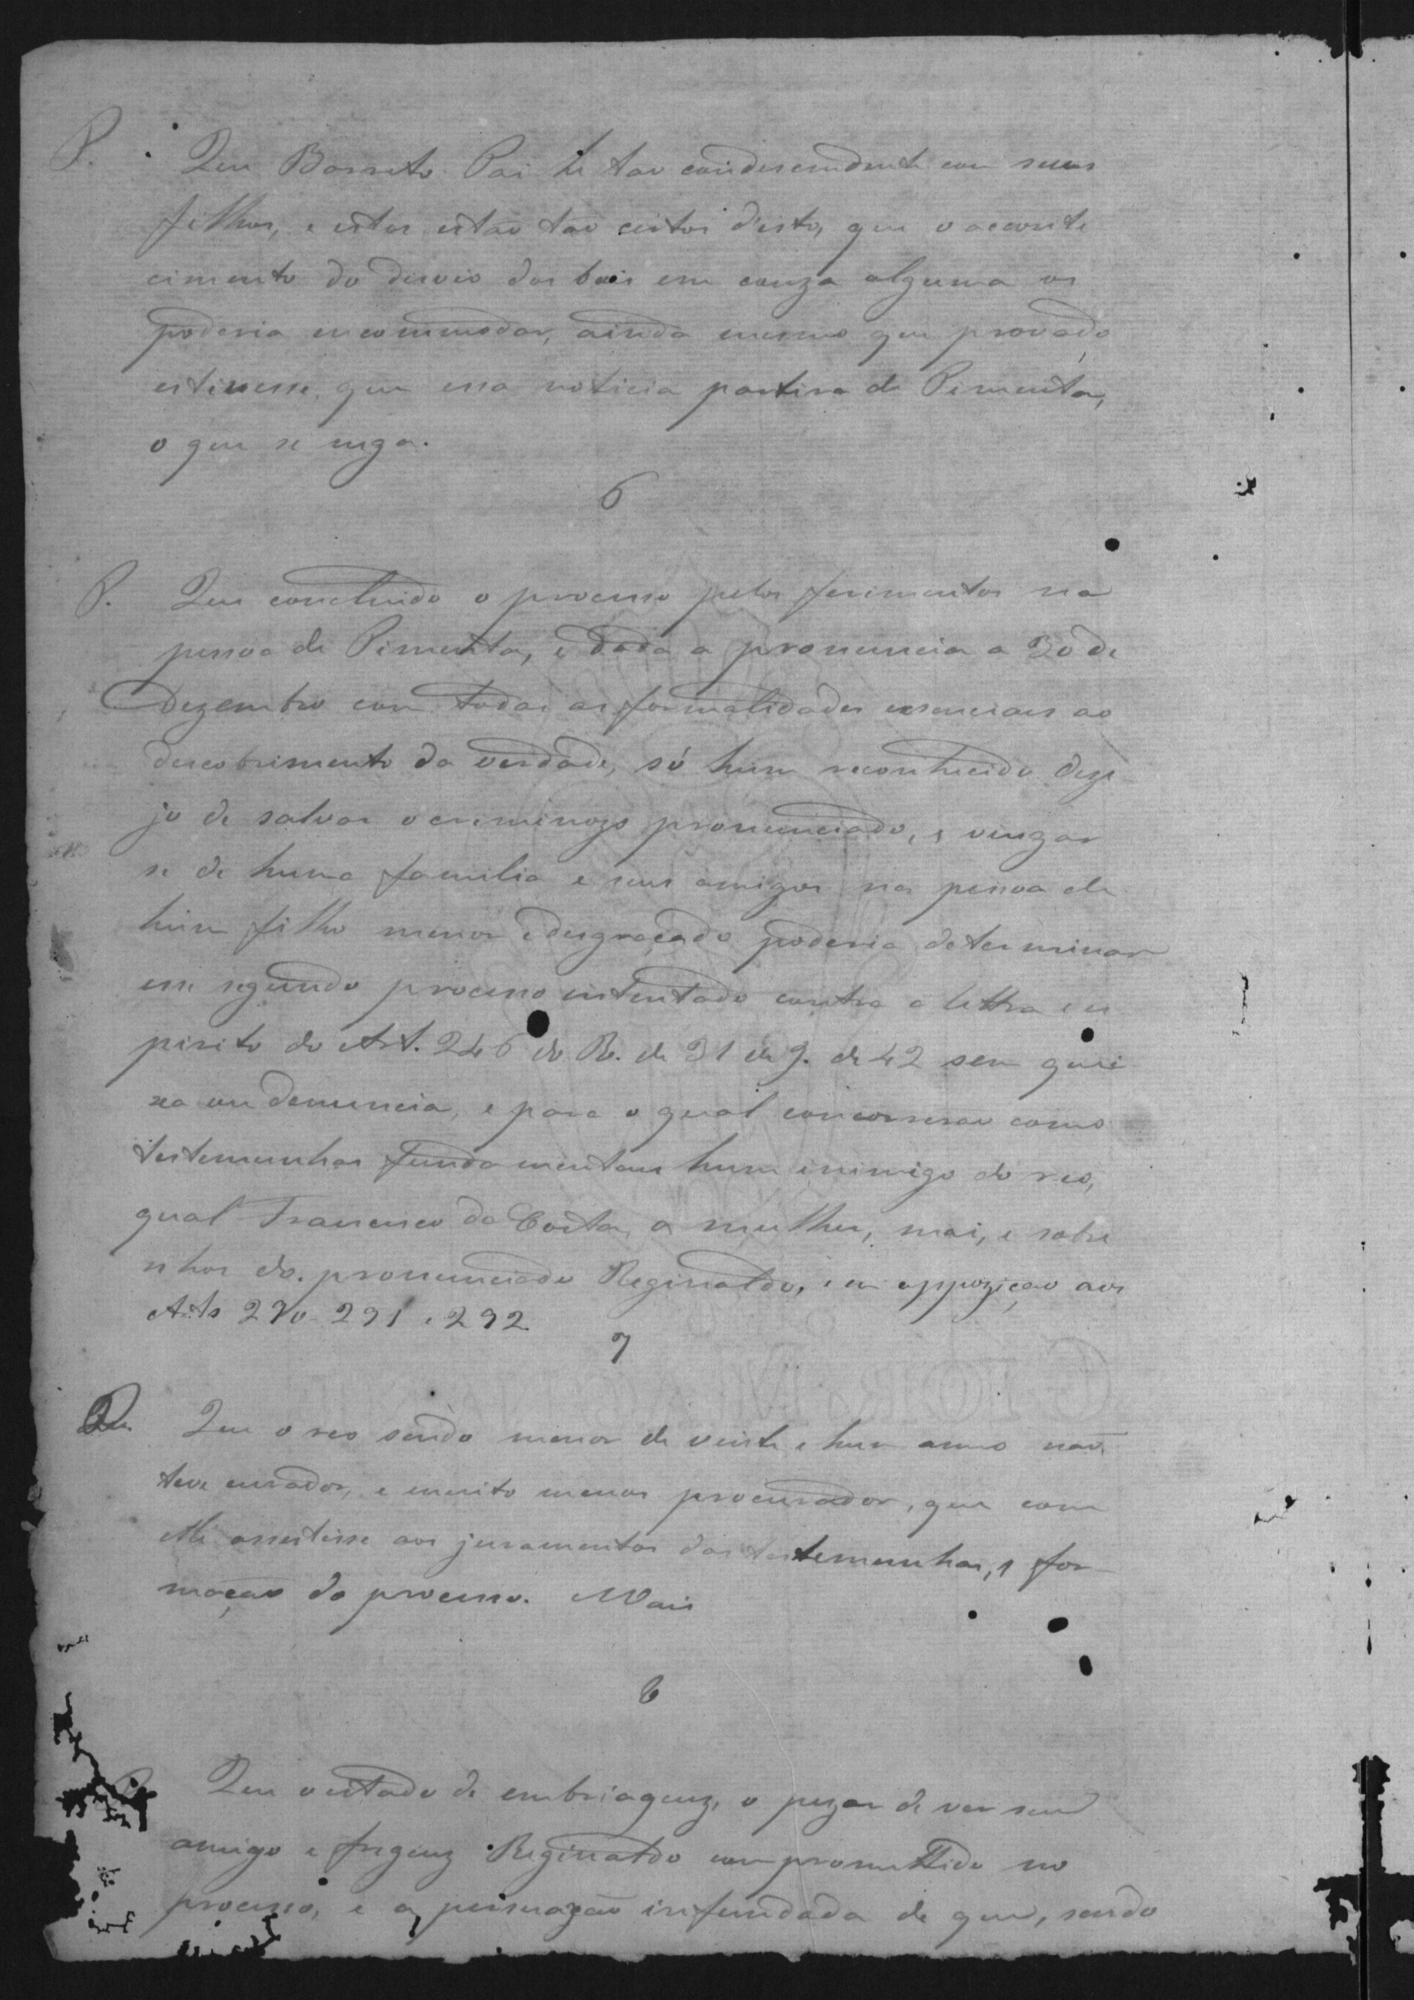 P. Que Barreto Pai he tao condescendente com seus
filhos, e estes estão tão certos d'isto, que o aconte
cimento do desvio dos bois em couza alguma os
poderia encommodar, ainda mesmo que provado
estivesse, que essa noticia partira de Pimenta,
o que se nega.
6
P. Que concluido o processo pelos ferimentos na
pessoa de Pimenta, e dada a pronuncia a 30 de
Dezembro com todas as formalidades essenciaes ao
descobrimento da verdade, só hum reconhecido deze
jo de salvar o criminozo pronunciado, e vingar
se de huma familia e seus amigos na pessoa de
hum filho menor e desgraçado poderia determinar
esse segundo processo intentado contra a lettra e es
pirito do Art. 246 do R. de 31 de J. de 42 sem quei
xa ou denuncia, e para o qual concorrerao como
testemunhas fundamentaes hum inimigo do reo,
qual Francisco da Costa, a mulher, mai, e sobri
nhos do pronunciado Reginaldo, e em oppozição aos
Arts 290 291 e 292
7
P. Que o reo sendo menor de vinte e hum anno não
teve curador, e muito menos procurador, que com
elle assistisse aos juramentos das testemunhas, e for
mação do processo. Mais
8
Que o estado de embriaguez, o pezar de ver seu
amigo e freguez Reginaldo compromettido no
processo, e a persuazão infundada de que, sendo